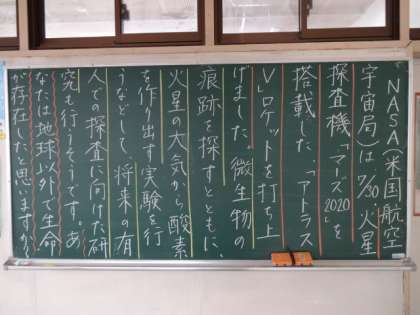 NASA(米国航空
宇宙局)は7/30、火星
探査機「マーズ2020」を
搭載した、「アトラス
V」ロケットを打ち上
げました。微生物の
痕跡を探すとともに、
火星の大気から酸素
を作り出す実験を行
うなどして、将来の有
人での探査に向けた研
究も行うそうです。あ
なたは地球以外で生命
が存在したと思いますか?